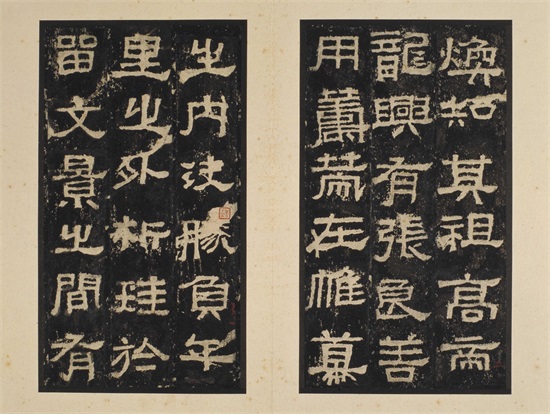 煥知其祖高帝
龍興有張良善
用籌策在帷幕
之内決勝負千
里之外析珪於
留文景之間有